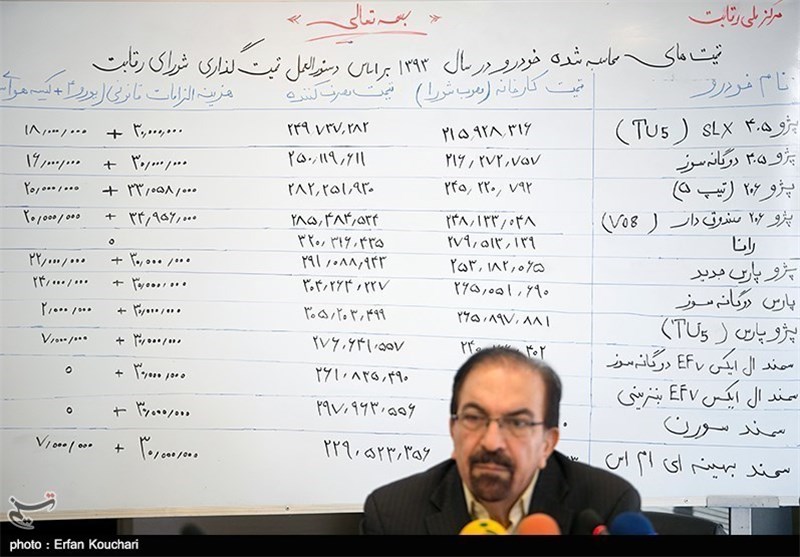 بسمه تعالی
مرکز ملی رقابت
قیمت های محاسبه شده خودرو در سال ۱۳۹۳ بر اساس دستورالعمل قیمت گذاری شورای رقابت
نام خودرو قیمت کارخانه (مصوب شورا) قیمت مصرف کننده هزینه الزامات قانونی (یورو ۴ + کیسه هوا
پژو ۴۰۵ SLX (TU5) ۲۱۵,۹۲۸,۳۱۶ ۲۴۹,۷۳۷,۲۸۲ ۳۰,۰۰۰,۰۰۰ + ۱۸,۰۰۰,۰۰۰
پژو ۴۰۵ دوگانه سوز ۲۱۶,۲۷۲,۷۵۷ ۲۵۰,۱۱۹,۶۱۱ ۳۰,۰۰۰,۰۰۰ + ۱۶,۰۰۰,۰۰۰
پژو ۲۰۶ (تیپ ۵) ۲۴۵,۲۲۰,۷۹۲ ۲۸۲,۲۵۱,۹۳۰ ۳۳,۰۵۸,۰۰۰ + ۲۰,۰۰۰,۰۰۰
پژو ۲۰۶ صندوق دار (V08) ۲۴۸,۱۳۳,۰۴۸ ۲۸۵,۴۸۴,۵۳۴ ۳۴,۹۵۶,۰۰۰ + ۲۰,۰۰۰,۰۰۰
رانا ۲۷۹,۵۱۳,۱۳۹ ۳۲۰,۳۱۶,۴۳۵ ۰
پژو پارس جدید ۲۵۳,۱۸۲,۰۶۵ ۲۹۱,۰۸۸,۹۴۳ ۳۰,۰۰۰,۰۰۰ + ۲۲,۰۰۰,۰۰۰
پارس دوگانه سوز ۲۶۵,۰۵۱,۶۹۰ ۳۰۴,۲۶۴,۲۲۷ ۳۰,۰۰۰,۰۰۰ + ۲۴,۰۰۰,۰۰۰
پژو پارس (TU5) ۲۶۵,۸۹۷,۸۸۱ ۳۰۵,۲۰۳,۴۹۹ ۳۰,۰۰۰,۰۰۰ + ۲,۰۰۰,۰۰۰
سمند ال ایکس EF7 دوگانه سوز ۴۰۲ ۲۷۶,۶۴۱,۵۵۷ ۳۰,۰۰۰,۰۰۰ + ۷,۰۰۰,۰۰۰
سمند ال ایکس EF7 بنزینی ۲۶۱,۸۲۵,۴۹۰ ۳۰,۰۰۰,۰۰۰ + ۰
سمند سورن ۲۹۷,۹۶۳,۵۵۶ ۳۰,۰۰۰,۰۰۰ + ۰
سمند بهینه ای ام اس ۲۲۹,۵۲۳,۳۵۶ ۳۰,۰۰۰,۰۰۰ + ۷,۰۰۰,۰۰۰
تسنیم
photo : Erfan Kouchari